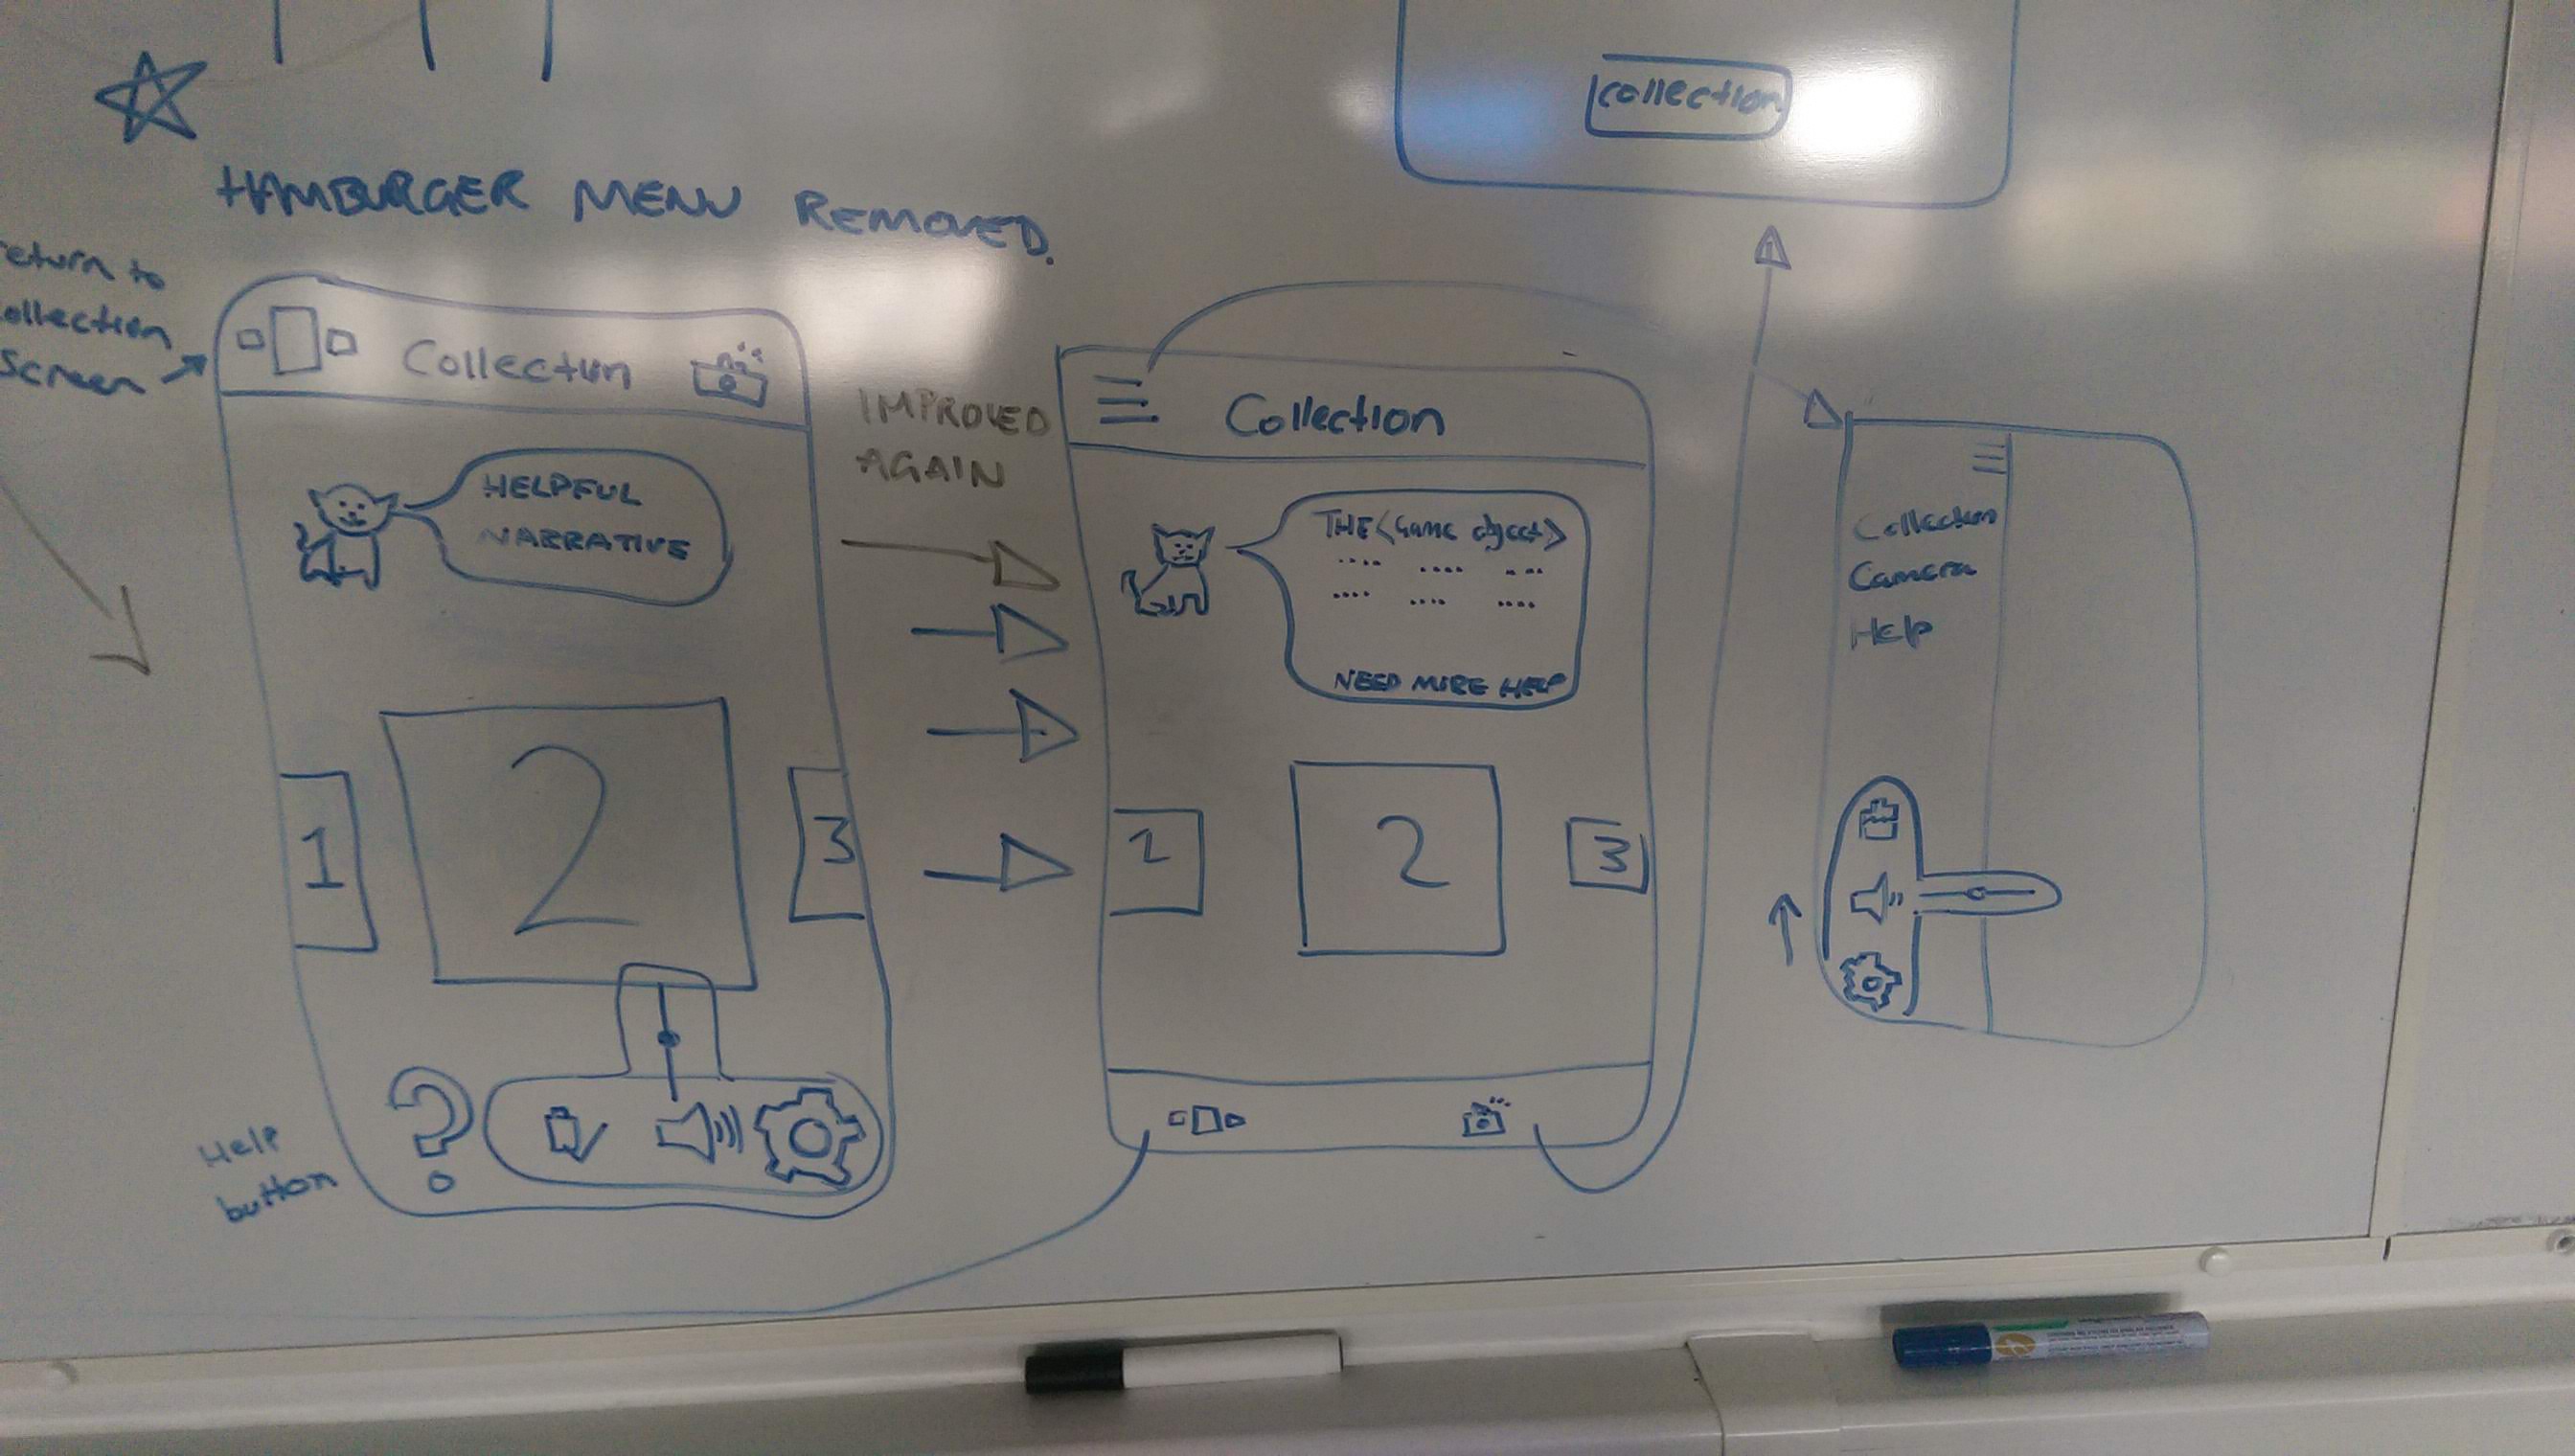 collection
HAMBURGER MENU REMOVED.
return to
collection
screen
Collection
HELPFUL
NARRATIVE
1
2
3
?
Help
button
IMPROVED
AGAIN
Collection
THE <Game object>
.... .... ....
.... .... ....
NEED MORE HELP
1
2
3
Collection
Camera
Help